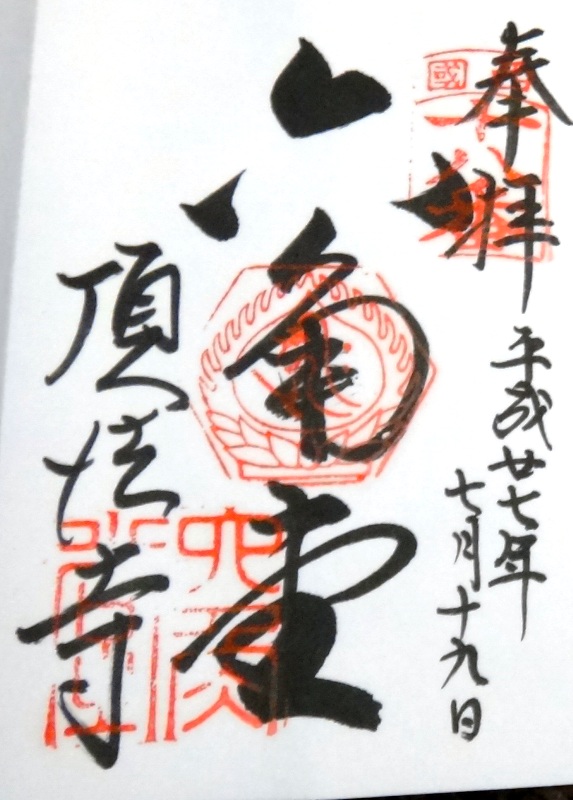 奉拝
平成廿七年
七月十九日
六角堂
頂法寺